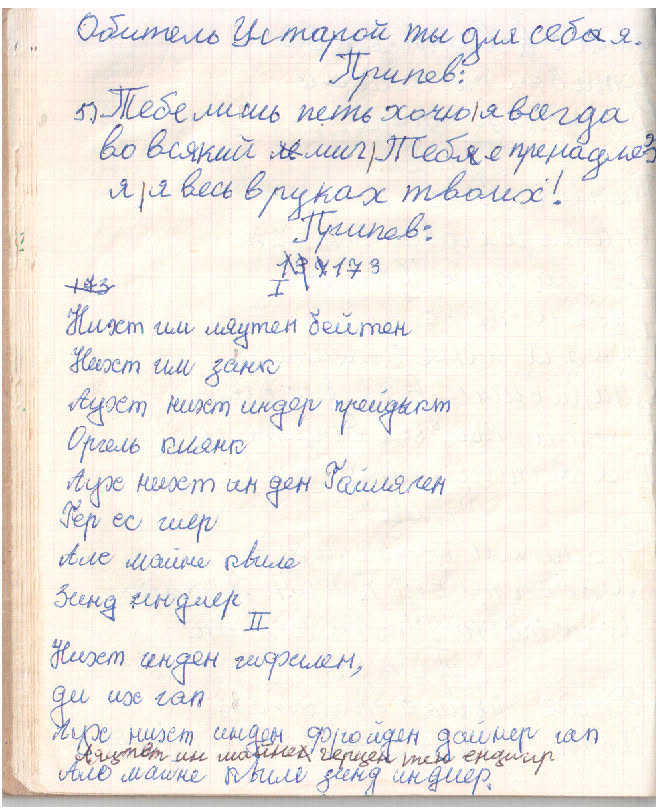 Обитель Устарой ты для себя я.
Припев:
5) Тебе лишь петь хочю я всегда
во всякий миг, Тебе пренадлеэ
я, я весь в руках твоих!
Припев:
173
173
I
Нихт им ляутен бейтен
Нихт им занк
Аухт нихт индер прейдыкт
Оргель кклянк
Аух нихт ин ден Гайляген
Гер ес гиер
Але майне квиле
Зинд индиер
II
Нихт инден гифилен,
ди их гап
Аух нихт инден фройден дайнер гап
Ляутет ин майнен герцен
Але майне квиле зинд индиер.